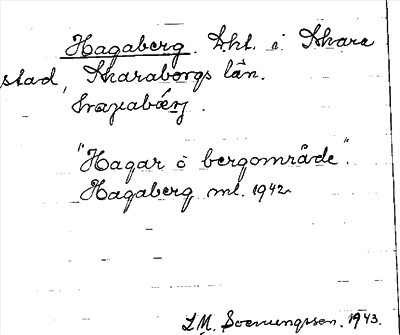 Hagaberg. Lht. i Skara
stad, Skaraborgs län.
"Hagar o bergområde".
Hagaberg ml. 1942
L.M. Svenungsson. 1943.